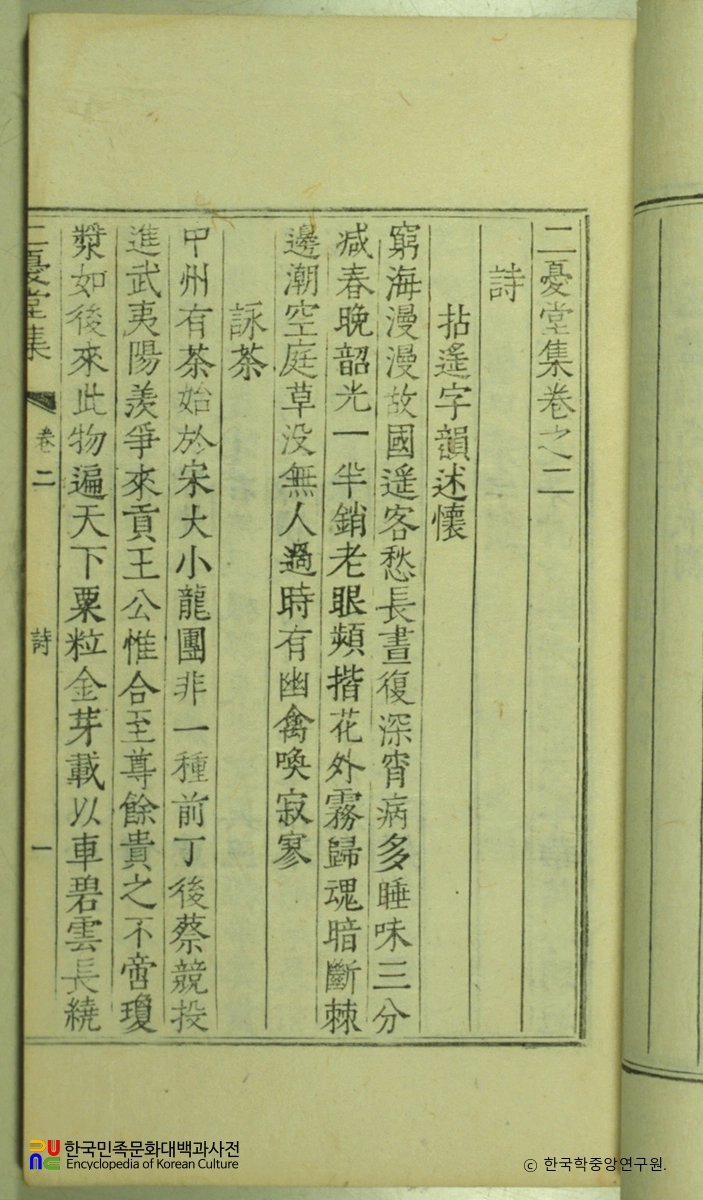 二憂堂集卷之二
詩
拈遙字韻述懷
窮海漫漫故國遙客愁長晝復深宵病多睡味三分
减春晚韶光一半銷老眼頻揩花外霧歸魂暗斷棘
邊潮空庭草没無人過時有幽禽喚寂寥
詠茶
中州有茶始於宋大小龍團非一種前丁後蔡競投
進武夷陽羨爭來貢王公惟合至尊餘貴之不啻瓊
漿如後來此物遍天下粟粒金芽載以車碧雲長繞
二憂堂集 卷二 詩 一
한국민족문화대백과사전
Encyclopedia of Korean Culture
© 한국학중앙연구원.